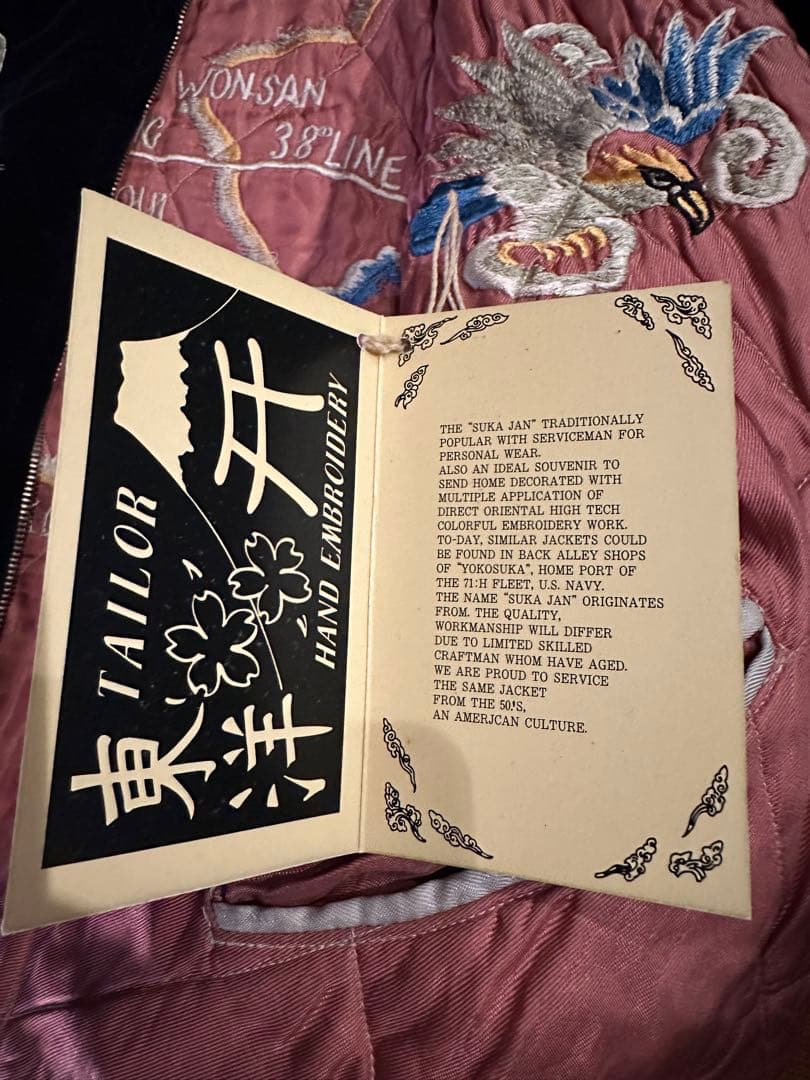 WONSAN
G
38°LINE
OUL
TAILOR
東洋
HAND EMBROIDERY
THE "SUKA JAN" TRADITIONALLY
POPULAR WITH SERVICEMAN FOR
PERSONAL WEAR.
ALSO AN IDEAL SOUVENIR TO
SEND HOME DECORATED WITH
MULTIPLE APPLICATION OF
DIRECT ORIENTAL HIGH TECH
COLORFUL EMBROIDERY WORK.
TO-DAY, SIMILAR JACKETS COULD
BE FOUND IN BACK ALLEY SHOPS
OF "YOKOSUKA", HOME PORT OF
THE 71:H FLEET, U.S. NAVY.
THE NAME "SUKA JAN" ORIGINATES
FROM. THE QUALITY,
WORKMANSHIP WILL DIFFER
DUE TO LIMITED SKILLED
CRAFTMAN WHOM HAVE AGED.
WE ARE PROUD TO SERVICE
THE SAME JACKET
FROM THE 50.'S,
AN AMERJCAN CULTURE.